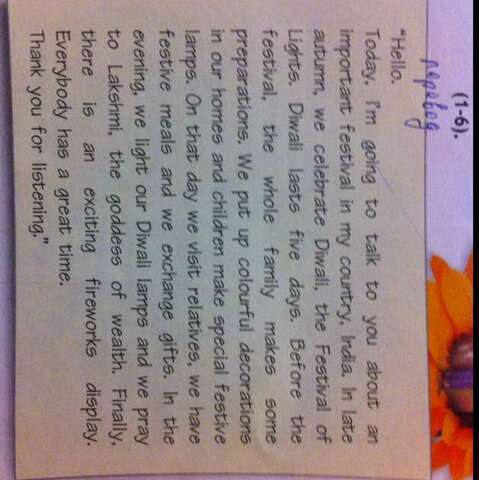 (1-6).
перевод
"Hello.
Today, I'm going to talk to you about an
important festival in my country, India. In late
autumn, we celebrate Diwali, the Festival of
Lights. Diwali lasts five days. Before the
festival, the whole family makes some
preparations. We put up colourful decorations
in our homes and children make special festive
lamps. On that day we visit relatives, we have
festive meals and we exchange gifts. In the
evening, we light our Diwali lamps and we pray
to Lakshmi, the goddess of wealth. Finally,
there is an exciting fireworks display.
Everybody has a great time.
Thank you for listening."